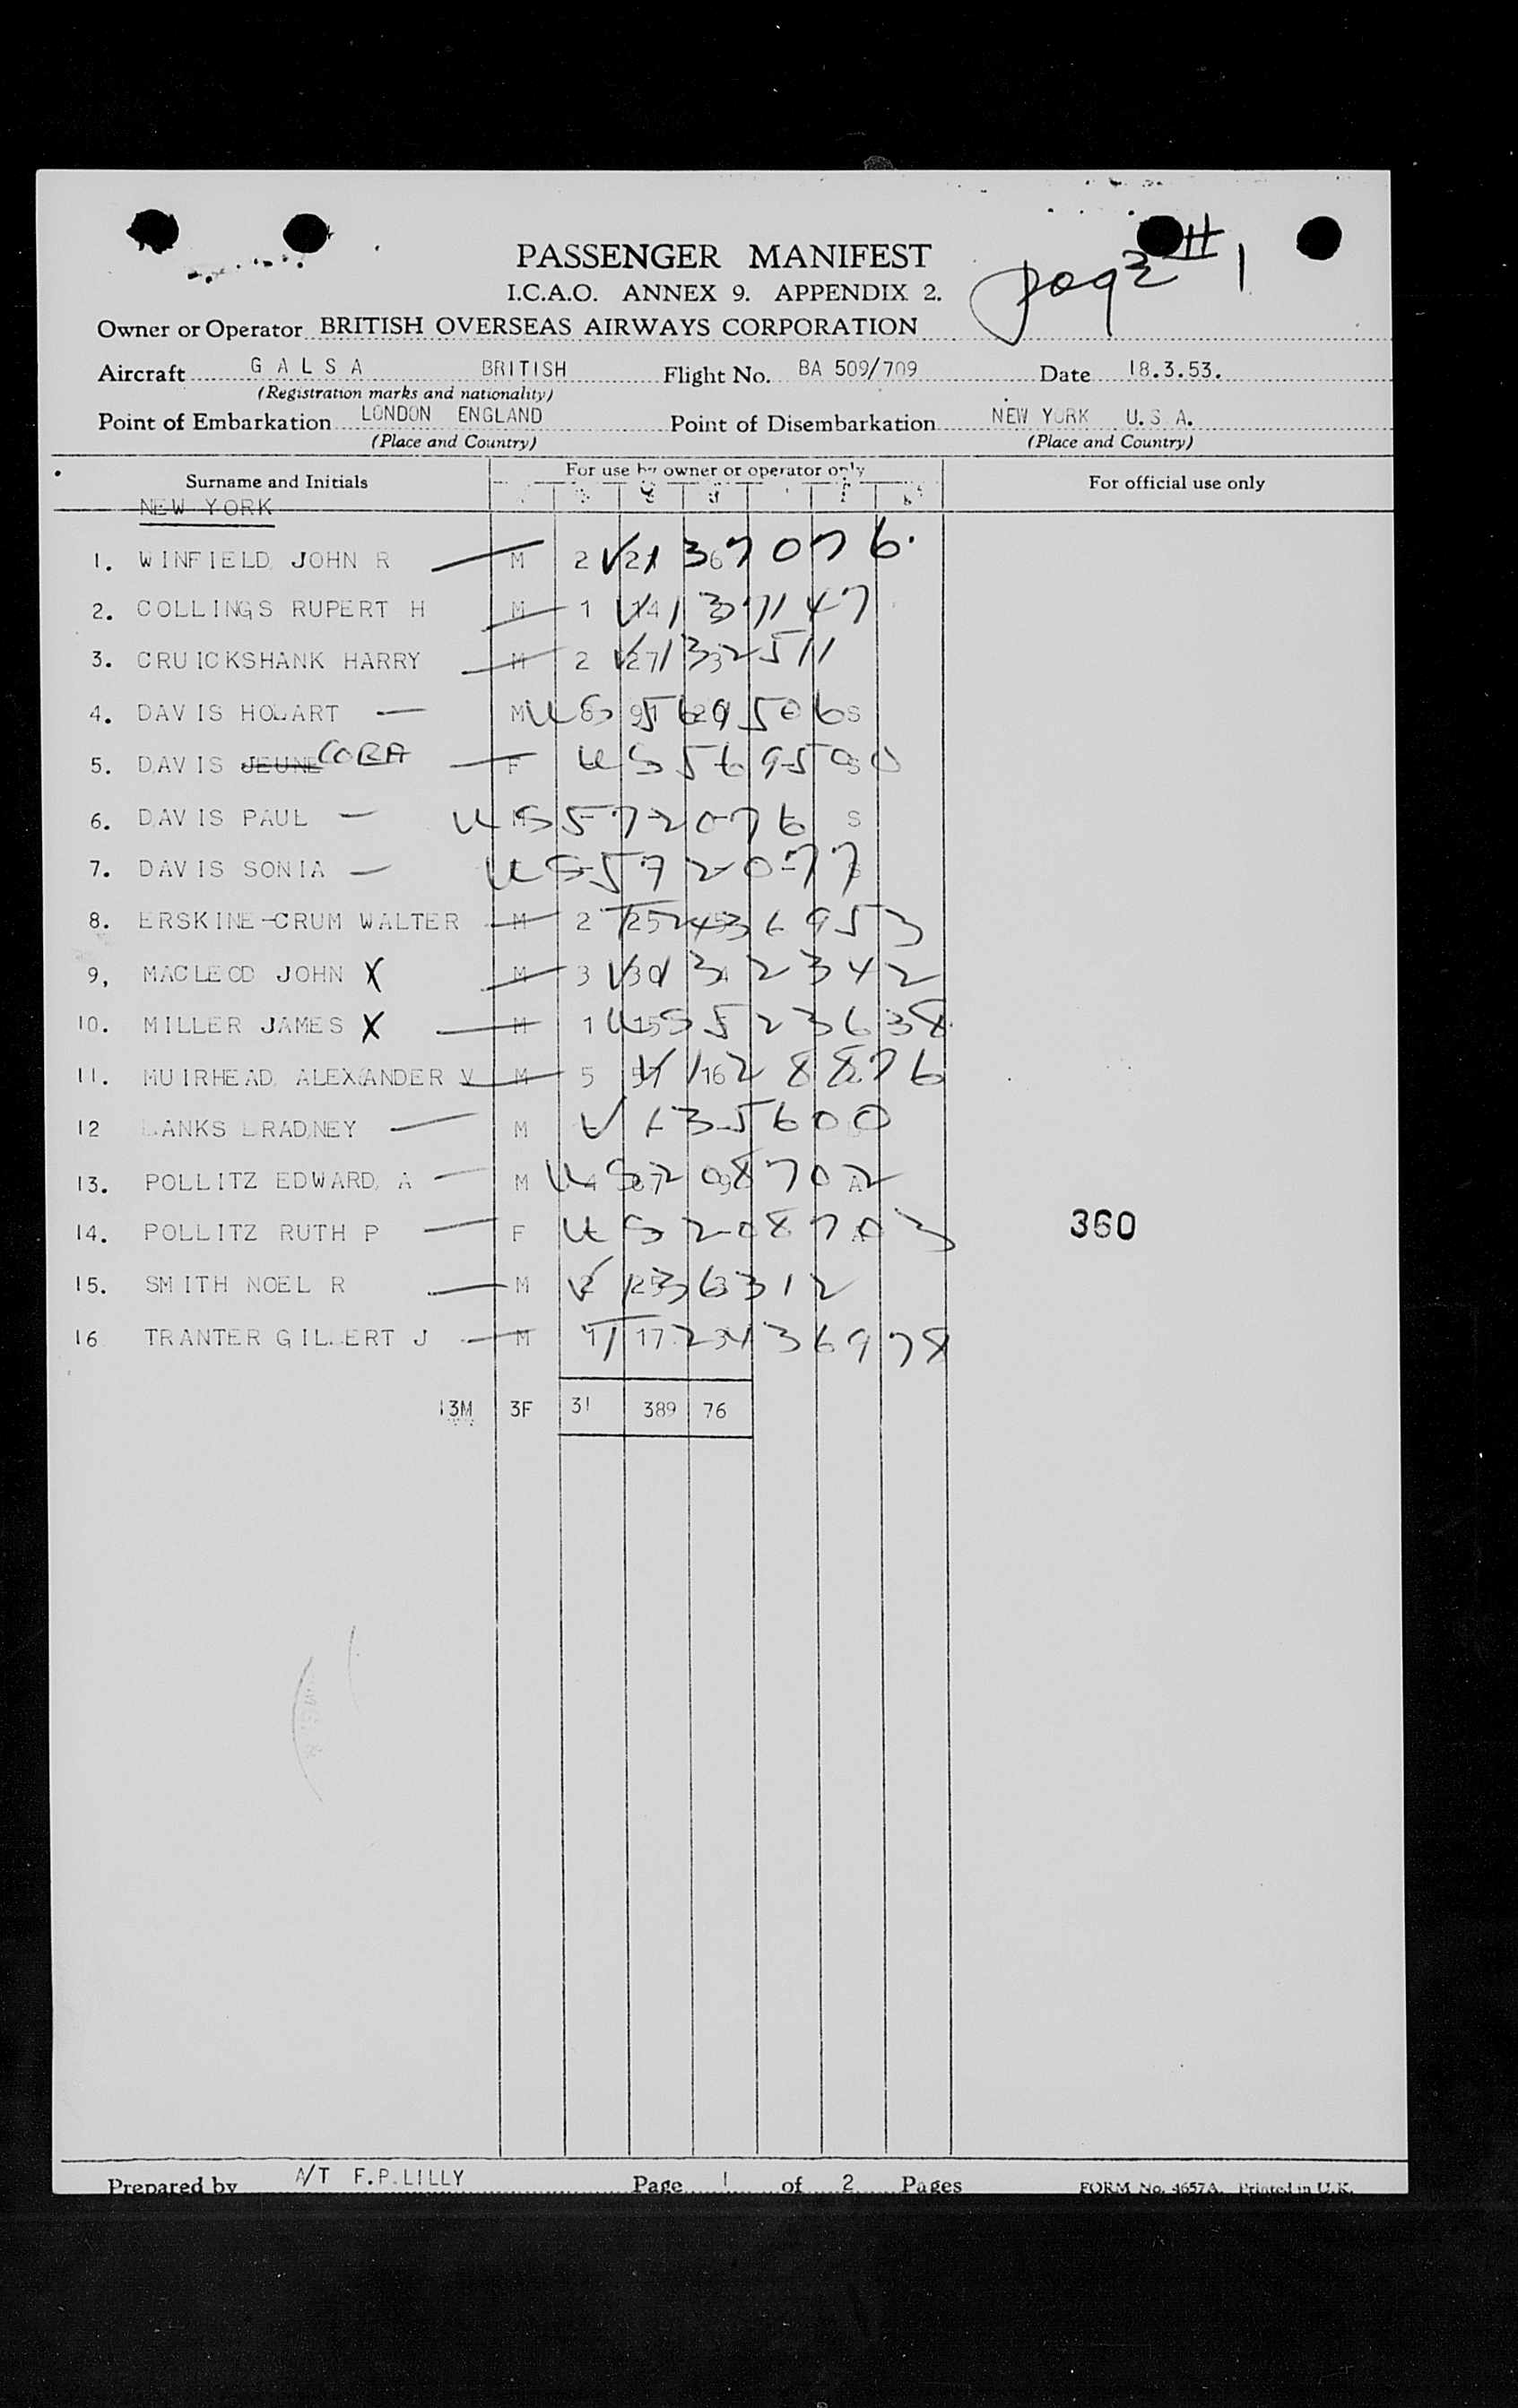 page #1
PASSENGER MANIFEST
I.C.A.O. ANNEX 9. APPENDIX 2.
Owner or Operator BRITISH OVERSEAS AIRWAYS CORPORATION
Aircraft G A L S A BRITISH Flight No. BA 509/709 Date 18.3.53.
(Registration marks and nationality)
Point of Embarkation LONDON ENGLAND Point of Disembarkation NEW YORK U.S.A.
(Place and Country) (Place and Country)
Surname and Initials For use by owner or operator only For official use only
NEW YORK
1. WINFIELD JOHN R M 2 V 1367076.
2. COLLINGS RUPERT H M 1 V 1371147
3. CRUICKSHANK HARRY M 2 V 1332511
4. DAVIS HOBART M US 569506 S
5. DAVIS JEUNE CORA F US 569500
6. DAVIS PAUL US 572076 S
7. DAVIS SONIA US 572077
8. ERSKINE-CRUM WALTER M 2 25 2436953
9, MACLEOD JOHN X M 3 V 30 1312342
10. MILLER JAMES X M 1 15 US 523638
11. MUIRHEAD ALEXANDER V M 5 V 1628876
12 BRADNEY M V 135600
13. POLLITZ EDWARD A M US 208702
14. POLLITZ RUTH P F US 208703
360
15. SMITH NOEL R M V 1363312
16 TRANTER GILBERT J M 1 17 2436978
13M 3F 31 389 76
Prepared by A/T F.P.LILLY Page 1 of 2 Pages FORM No. 4657A. Printed in U.K.